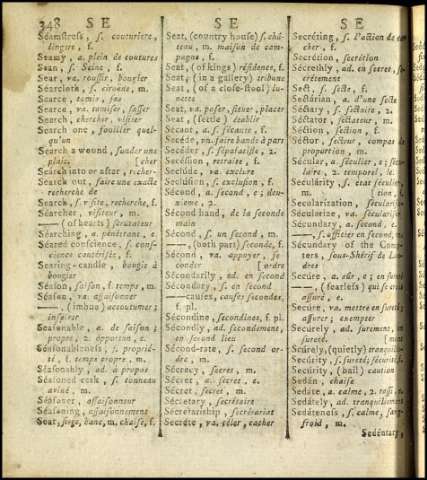 348 S E S E S E
Séamstress, s. couturiere,
lingere, f.
Séamy, a. plein de coutures
Sean, s. Seine, f.
Sear, va. roussir, brûler
Séarcloth, s. ciroëne, m.
Search, va.
Search, chercher, visiter
Search one, fouiller quel-
qu'un
Search a wound, sonder une
plaie. [cher
Search into or after, recher-
Search out, faire une exacte
recherche de
Search, s. visite, recherche, f.
Séarcher, visiteur, m.
—— (of hearts) scrutateur
Séarching, a. pénétrant, e.
Seared conscience, s. cons-
cience cautérisée, f.
Searing-candle, bougie à
bougier
Séason, saison, f. temps, m.
Séason, va. assaisonner
——, (imbue) accoutumer;
inspirer
Séasonable, a. de saison;
propre, 2. opportun, e.
Séasonableness, s. proprié-
té, f. temps propre, m.
Séasonably, ad. à propos
Séasoned cask, s. tonneau
aviné, m.
Séasoner, assaisonneur
Séasoning, assaisonnement
Seat, siege, banc, m. chaise, f.
Seat, (country house) s. châ-
teau, m. maison de cam-
pagne, f.
Seat, (of kings) résidence, f.
Seat, (in a gallery) tribune
Seat, (of a close-stool) lu-
nette
Seat, va. poser, situer, placer
Seat, (settle) établir
Sécant, a. s. sécante, f.
Secéde, va. faire bande à part
Secéder, s. séparatiste, 2.
Secéssion, retraite, f.
Seclúde, va. exclure
Seclúsion, s. exclusion, f.
Sécond, a. second, e; deu-
xieme, 2.
Sécond hand, de la seconde
main
Sécond, s. un second, m.
——, (both part) seconde, f.
Sécond, va. appuyer, se-
conder [ordre
Sécondarily, ad. en second
Sécondary, s. en second
—— causes, causes secondes,
f. pl.
Sécondine, secondines, f. pl.
Sécondly, ad. secondement,
en second lieu
Sécond-rate, s. second or-
dre, m.
Sécrecy, secret, m.
Sécret, a. secret, e.
Sécret, secret, m.
Sécretary, secrétaire
Sécretariship, secrétariat
Secréte, va. céler, cacher
Secréting, s. l'action de ca-
cher, f.
Secrétion, secrétion
Sécretly, ad. en secret, se-
crétement
Sect, s. secte, f.
Sectárian, a. d'une secte
Séctary, s. sectaire, 2.
Sectátor, sectateur, m.
Séction, section, f.
Séctor, secteur, compas de
proportion, m.
Sécular, a. séculier, e; sécu-
laire, 2. temporel, le.
Seculárity, s. état séculier,
m. [tion, f.
Secularization, sécularisa-
Sécularize, va. séculariser
Sécundary, a. second, e.
——, s. officier en second, m.
Sécundary of the Comp-
ters, sous-Shérif de Lon-
dres
Secúre, a. sûr, e; en sureté
——, (fearless) qui se croit
assuré, e.
Secúre, va. mettre en sureté;
assurer; exempter
Secúrely, ad. surement, en
sureté. [ment
Secúrely, (quietly) tranquille-
Secúrity, s. sureté, sécurité, f.
Secúrity, (bail) caution
Sedán, chaise
Sedáte, a. calme, 2. rassis, e.
Sedátely, ad. tranquillement
Sedáteness, s. calme, sang-
froid, m.
Sedentary,